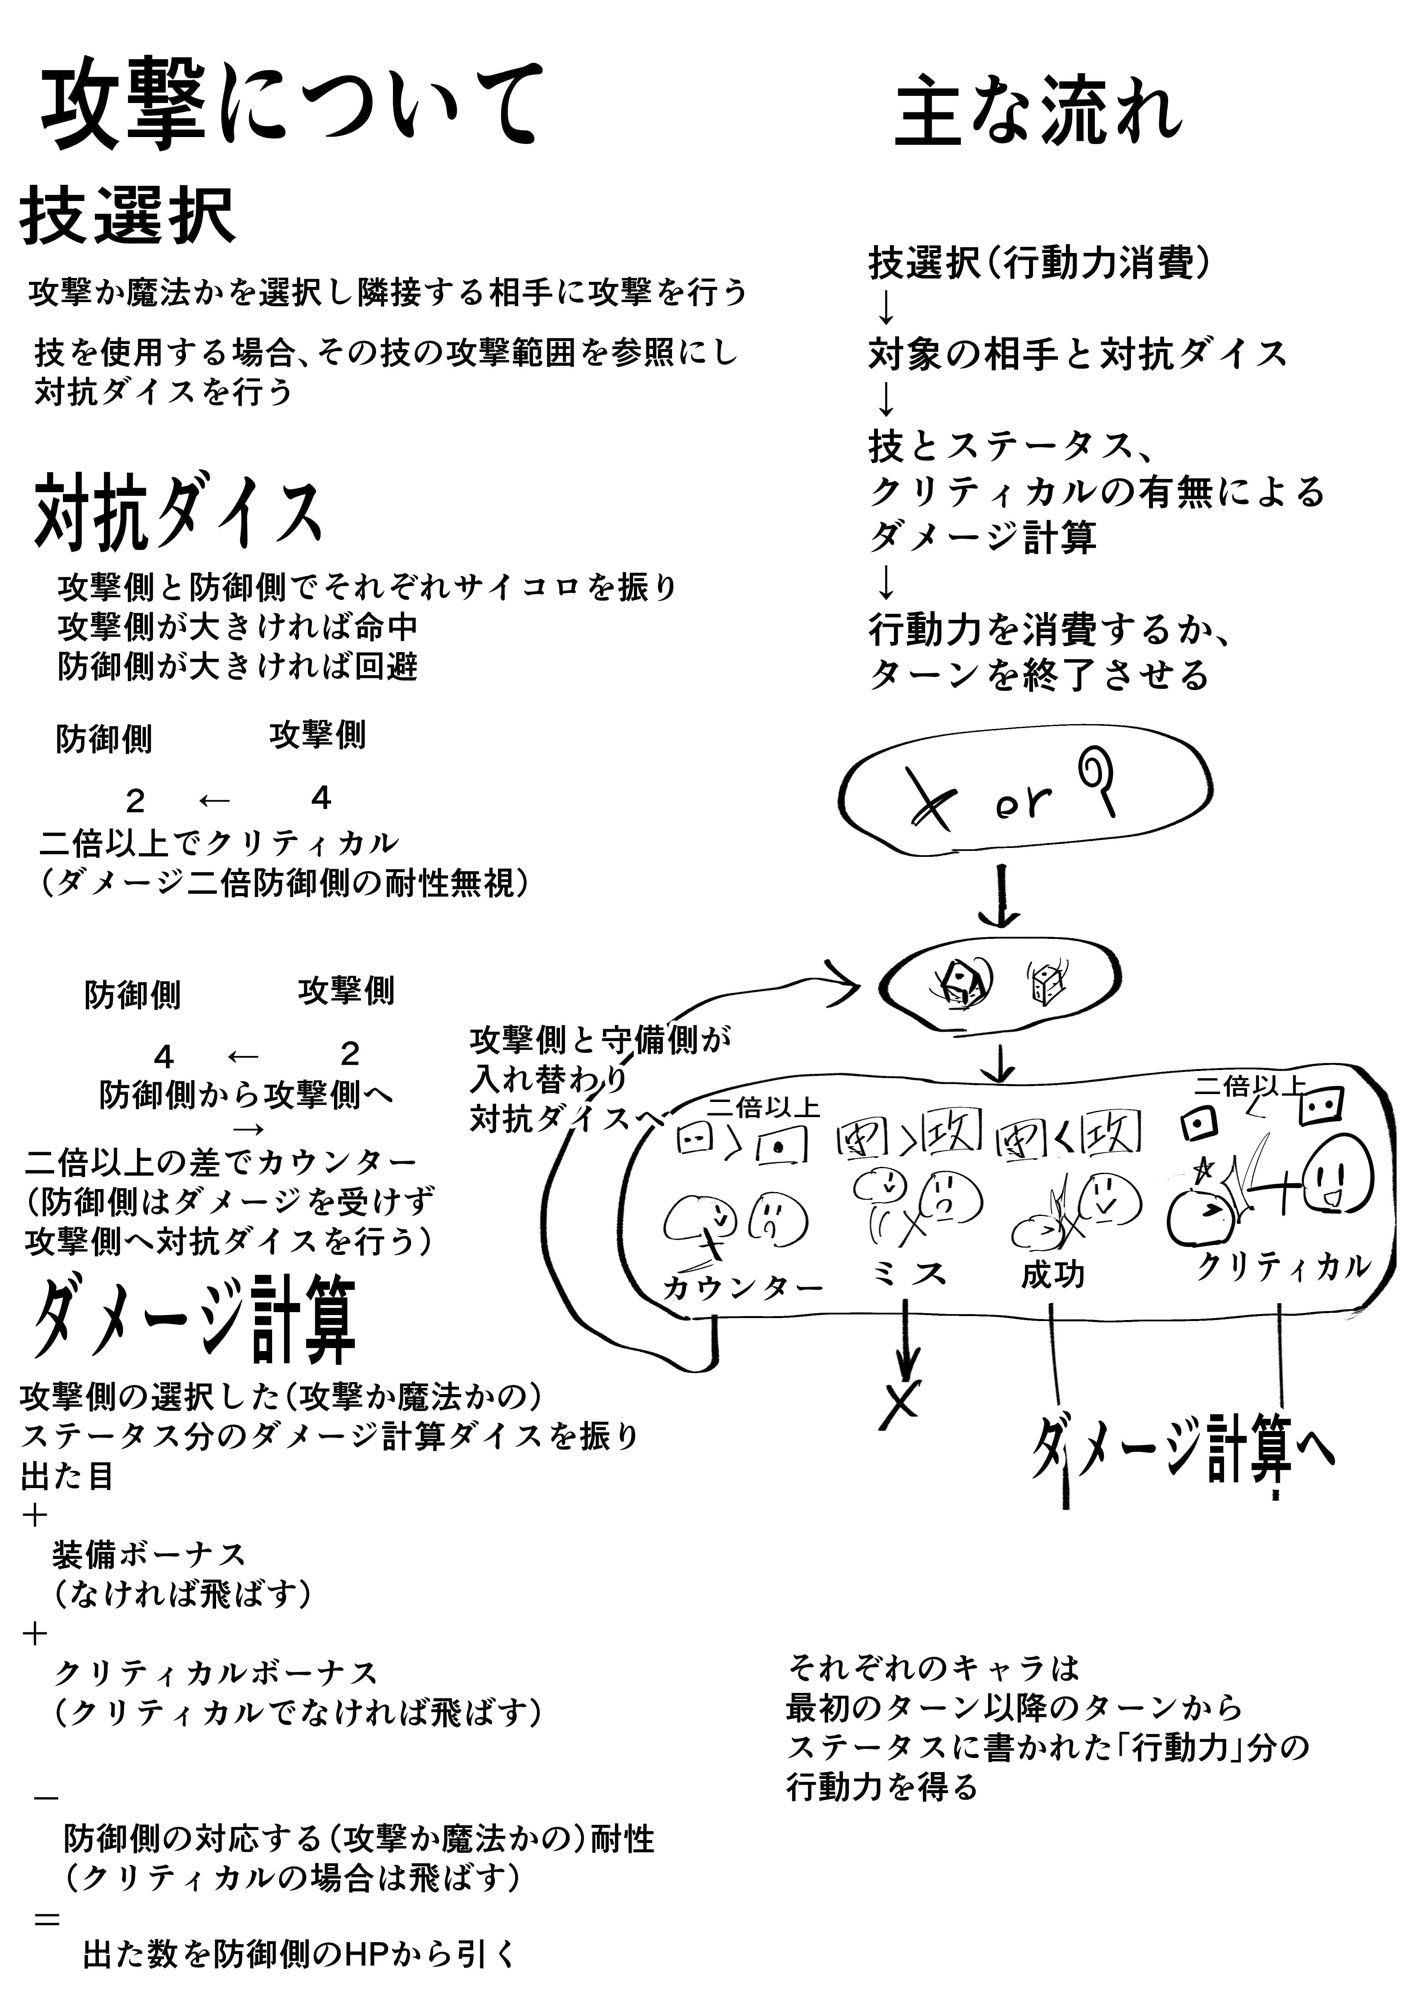 攻撃について
技選択
攻撃か魔法かを選択し隣接する相手に攻撃を行う
技を使用する場合、その技の攻撃範囲を参照にし
対抗ダイスを行う
対抗ダイス
攻撃側と防御側でそれぞれサイコロを振り
攻撃側が大きければ命中
防御側が大きければ回避
防御側 攻撃側
2 ← 4
二倍以上でクリティカル
（ダメージ二倍防御側の耐性無視）
防御側 攻撃側
4 ← 2
防御側から攻撃側へ
→
二倍以上の差でカウンター
（防御側はダメージを受けず
攻撃側へ対抗ダイスを行う）
ダメージ計算
攻撃側の選択した（攻撃か魔法かの）
ステータス分のダメージ計算ダイスを振り
出た目
＋
装備ボーナス
（なければ飛ばす）
＋
クリティカルボーナス
（クリティカルでなければ飛ばす）
－
防御側の対応する（攻撃か魔法かの）耐性
（クリティカルの場合は飛ばす）
＝
出た数を防御側のHPから引く
主な流れ
技選択（行動力消費）
↓
対象の相手と対抗ダイス
↓
技とステータス、
クリティカルの有無による
ダメージ計算
↓
行動力を消費するか、
ターンを終了させる
or
攻撃側と守備側が
入れ替わり
対抗ダイスへ
二倍以上
＞
カウンター
守＞攻
ミス
守＜攻
成功
二倍以上
＜
クリティカル
ダメージ計算へ
それぞれのキャラは
最初のターン以降のターンから
ステータスに書かれた「行動力」分の
行動力を得る